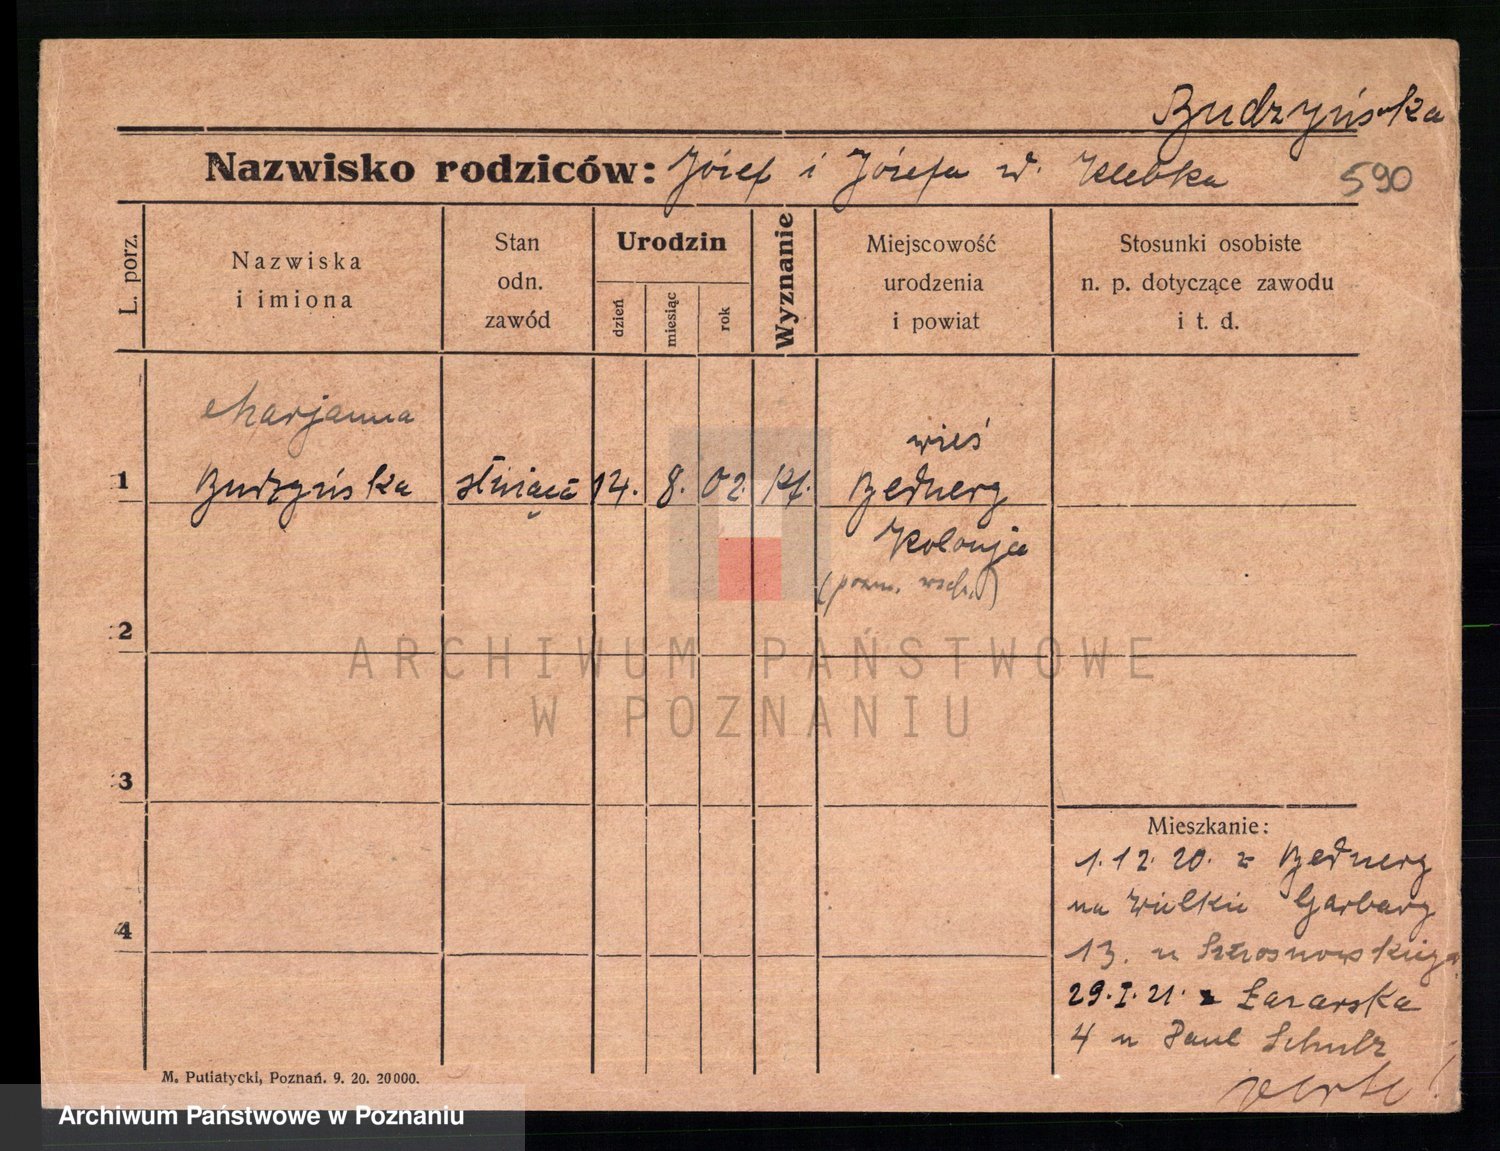 Budzyńska
Nazwisko rodziców: Józef i Józefa zd. Klebka
590
L. porz.
Nazwiska
i imiona
Stan
odn.
zawód
Urodzin
dzień
miesiąc
rok
Wyznanie
Miejscowość
urodzenia
i powiat
Stosunki osobiste
n. p. dotyczące zawodu
i t. d.
Marjanna
wieś
1 Budzyńska służąca 14. 8. 02. kt. Bednerg
Kolonja
(pozn. wsch.)
2
ARCHIWUM PAŃSTWOWE
W POZNANIU
3
Mieszkanie:
1.12.20. z Bednerg
na Wielkie Garbary
4
13. u
29.I.21. z Łazarska
4 u Paul Schulz
verte!
M. Putiatycki, Poznań. 9. 20. 20000.
Archiwum Państwowe w Poznaniu